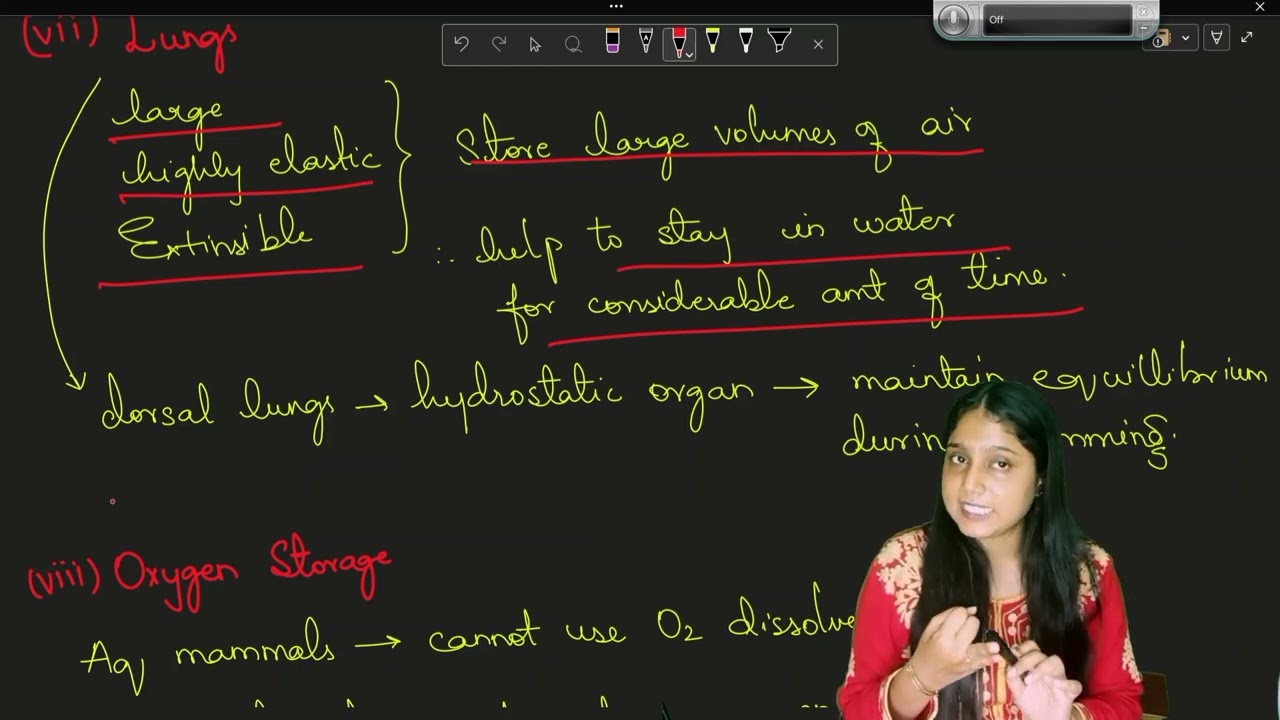 Off
(vii) Lungs
large
highly elastic
Extinsible
Store large volumes of air
∴ help to stay in water
for considerable amt of time.
dorsal lungs → hydrostatic organ → maintain equillibrium
during
(viii) Oxygen Storage
Aq mammals → cannot use O2